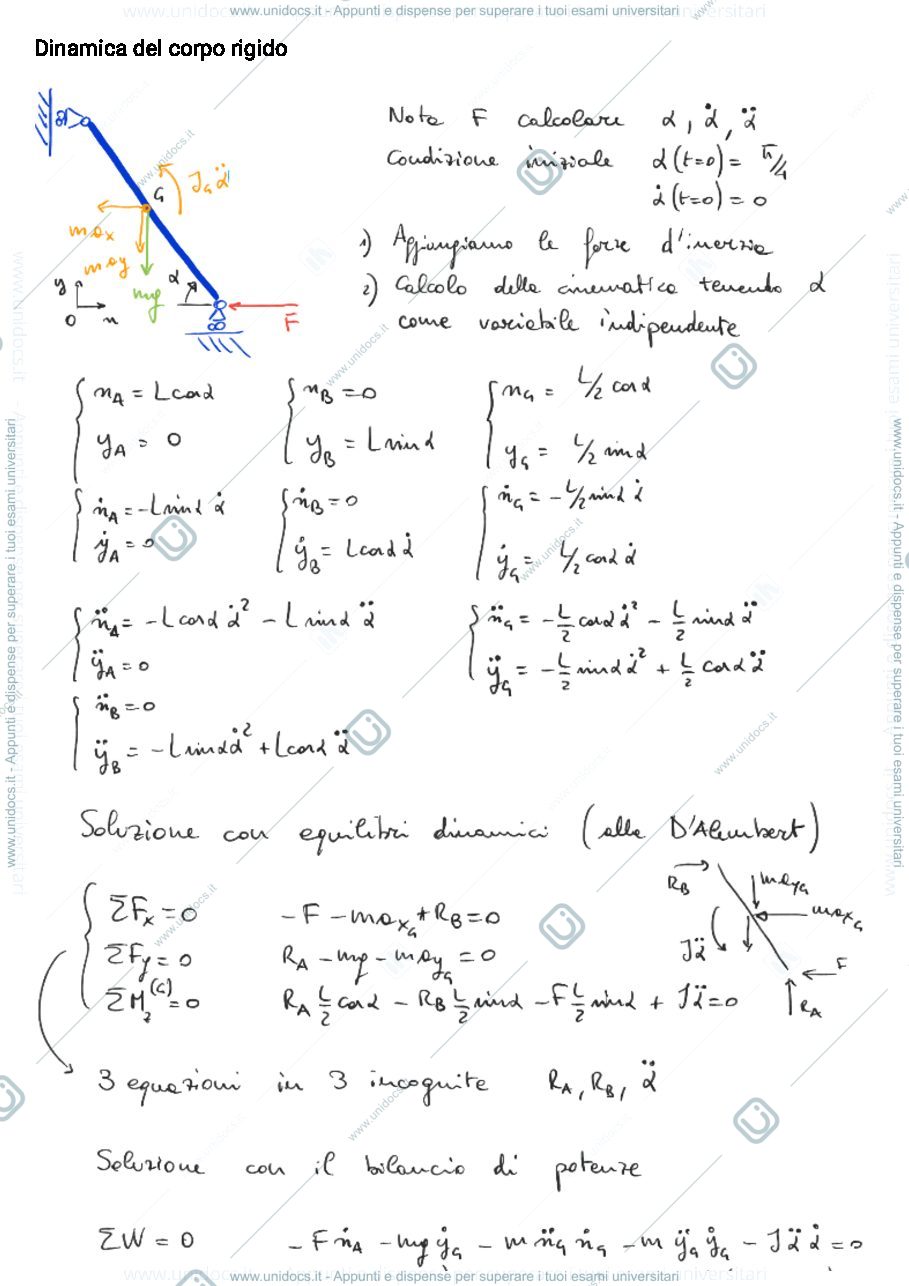 www.unidocs.it - Appunti e dispense per superare i tuoi esami universitari
Dinamica del corpo rigido
Nota F calcolare α, α̇, α̈
Condizione iniziale α(t=0) = π/4
α̇(t=0) = 0
1) Aggiungiamo le forze d'inerzia
2) Calcolo della cinematica tenendo α
come variabile indipendente
G
J_G α̈
max
may
mg
α
y
O
x
F
x_A = L cosα
y_A = 0
x_B = 0
y_B = L sinα
x_G = L/2 cosα
y_G = L/2 sinα
ẋ_A = -L sinα α̇
ẏ_A = 0
ẋ_B = 0
ẏ_B = L cosα α̇
ẋ_G = -L/2 sinα α̇
ẏ_G = L/2 cosα α̇
ẍ_A = -L cosα α̇² - L sinα α̈
ÿ_A = 0
ẍ_G = -L/2 cosα α̇² - L/2 sinα α̈
ÿ_G = -L/2 sinα α̇² + L/2 cosα α̈
ẍ_B = 0
ÿ_B = -L sinα α̇² + L cosα α̈
Soluzione con equilibri dinamici (alla D'Alembert)
ΣFx = 0 -F - max_G + R_B = 0
ΣFy = 0 R_A - mg - may_G = 0
ΣM_z^(G) = 0 R_A L/2 cosα - R_B L/2 sinα - F L/2 sinα + Jα̈ = 0
R_B
may_G
max_G
Jα̈
F
R_A
3 equazioni in 3 incognite R_A, R_B, α̈
Soluzione con il bilancio di potenze
ΣW = 0 -Fẋ_A - mgẏ_G - mẍ_G ẋ_G - mÿ_G ẏ_G - Jα̈ α̇ = 0
www.unidocs.it - Appunti e dispense per superare i tuoi esami universitari